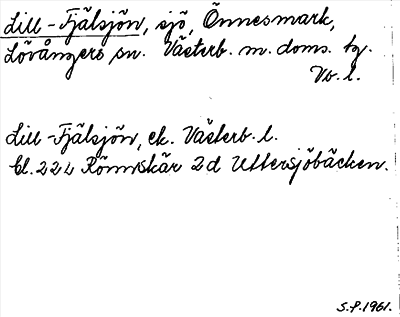 Lill-Fjälsjön, sjö, Önnesmark,
Lövångers sn. Västerb. m. doms. tg.
Vb. l.
Lill-Fjälsjön, ek. Västerb. l.
bl. 22 L Rönnskär 2d Uttersjöbäcken.
S.P. 1961.